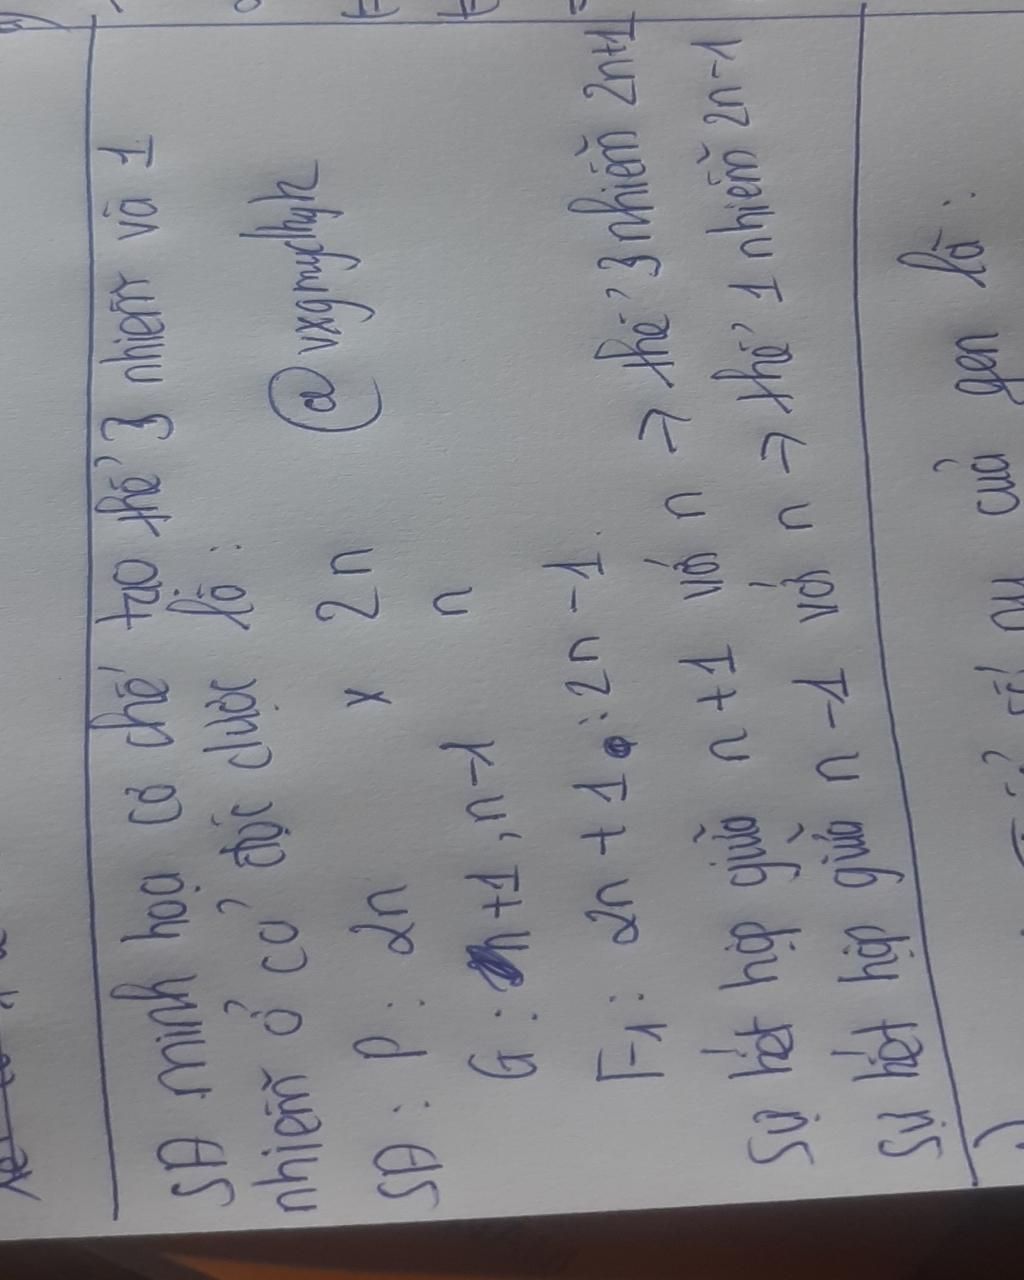 SĐ minh hoạ cơ chế tạo thể 3 nhiễm và 1
nhiễm ở cơ đặc được là :
@vxgmychyh
SĐ : P : 2n x 2n
G : n+1 , n-1 n
F-1 : 2n + 1 : 2n - 1
Sự kết hợp giữa n +1 với n → thể 3 nhiễm 2n+1
Sự kết hợp giữa n -1 với n → thể 1 nhiễm 2n-1
của gen là :